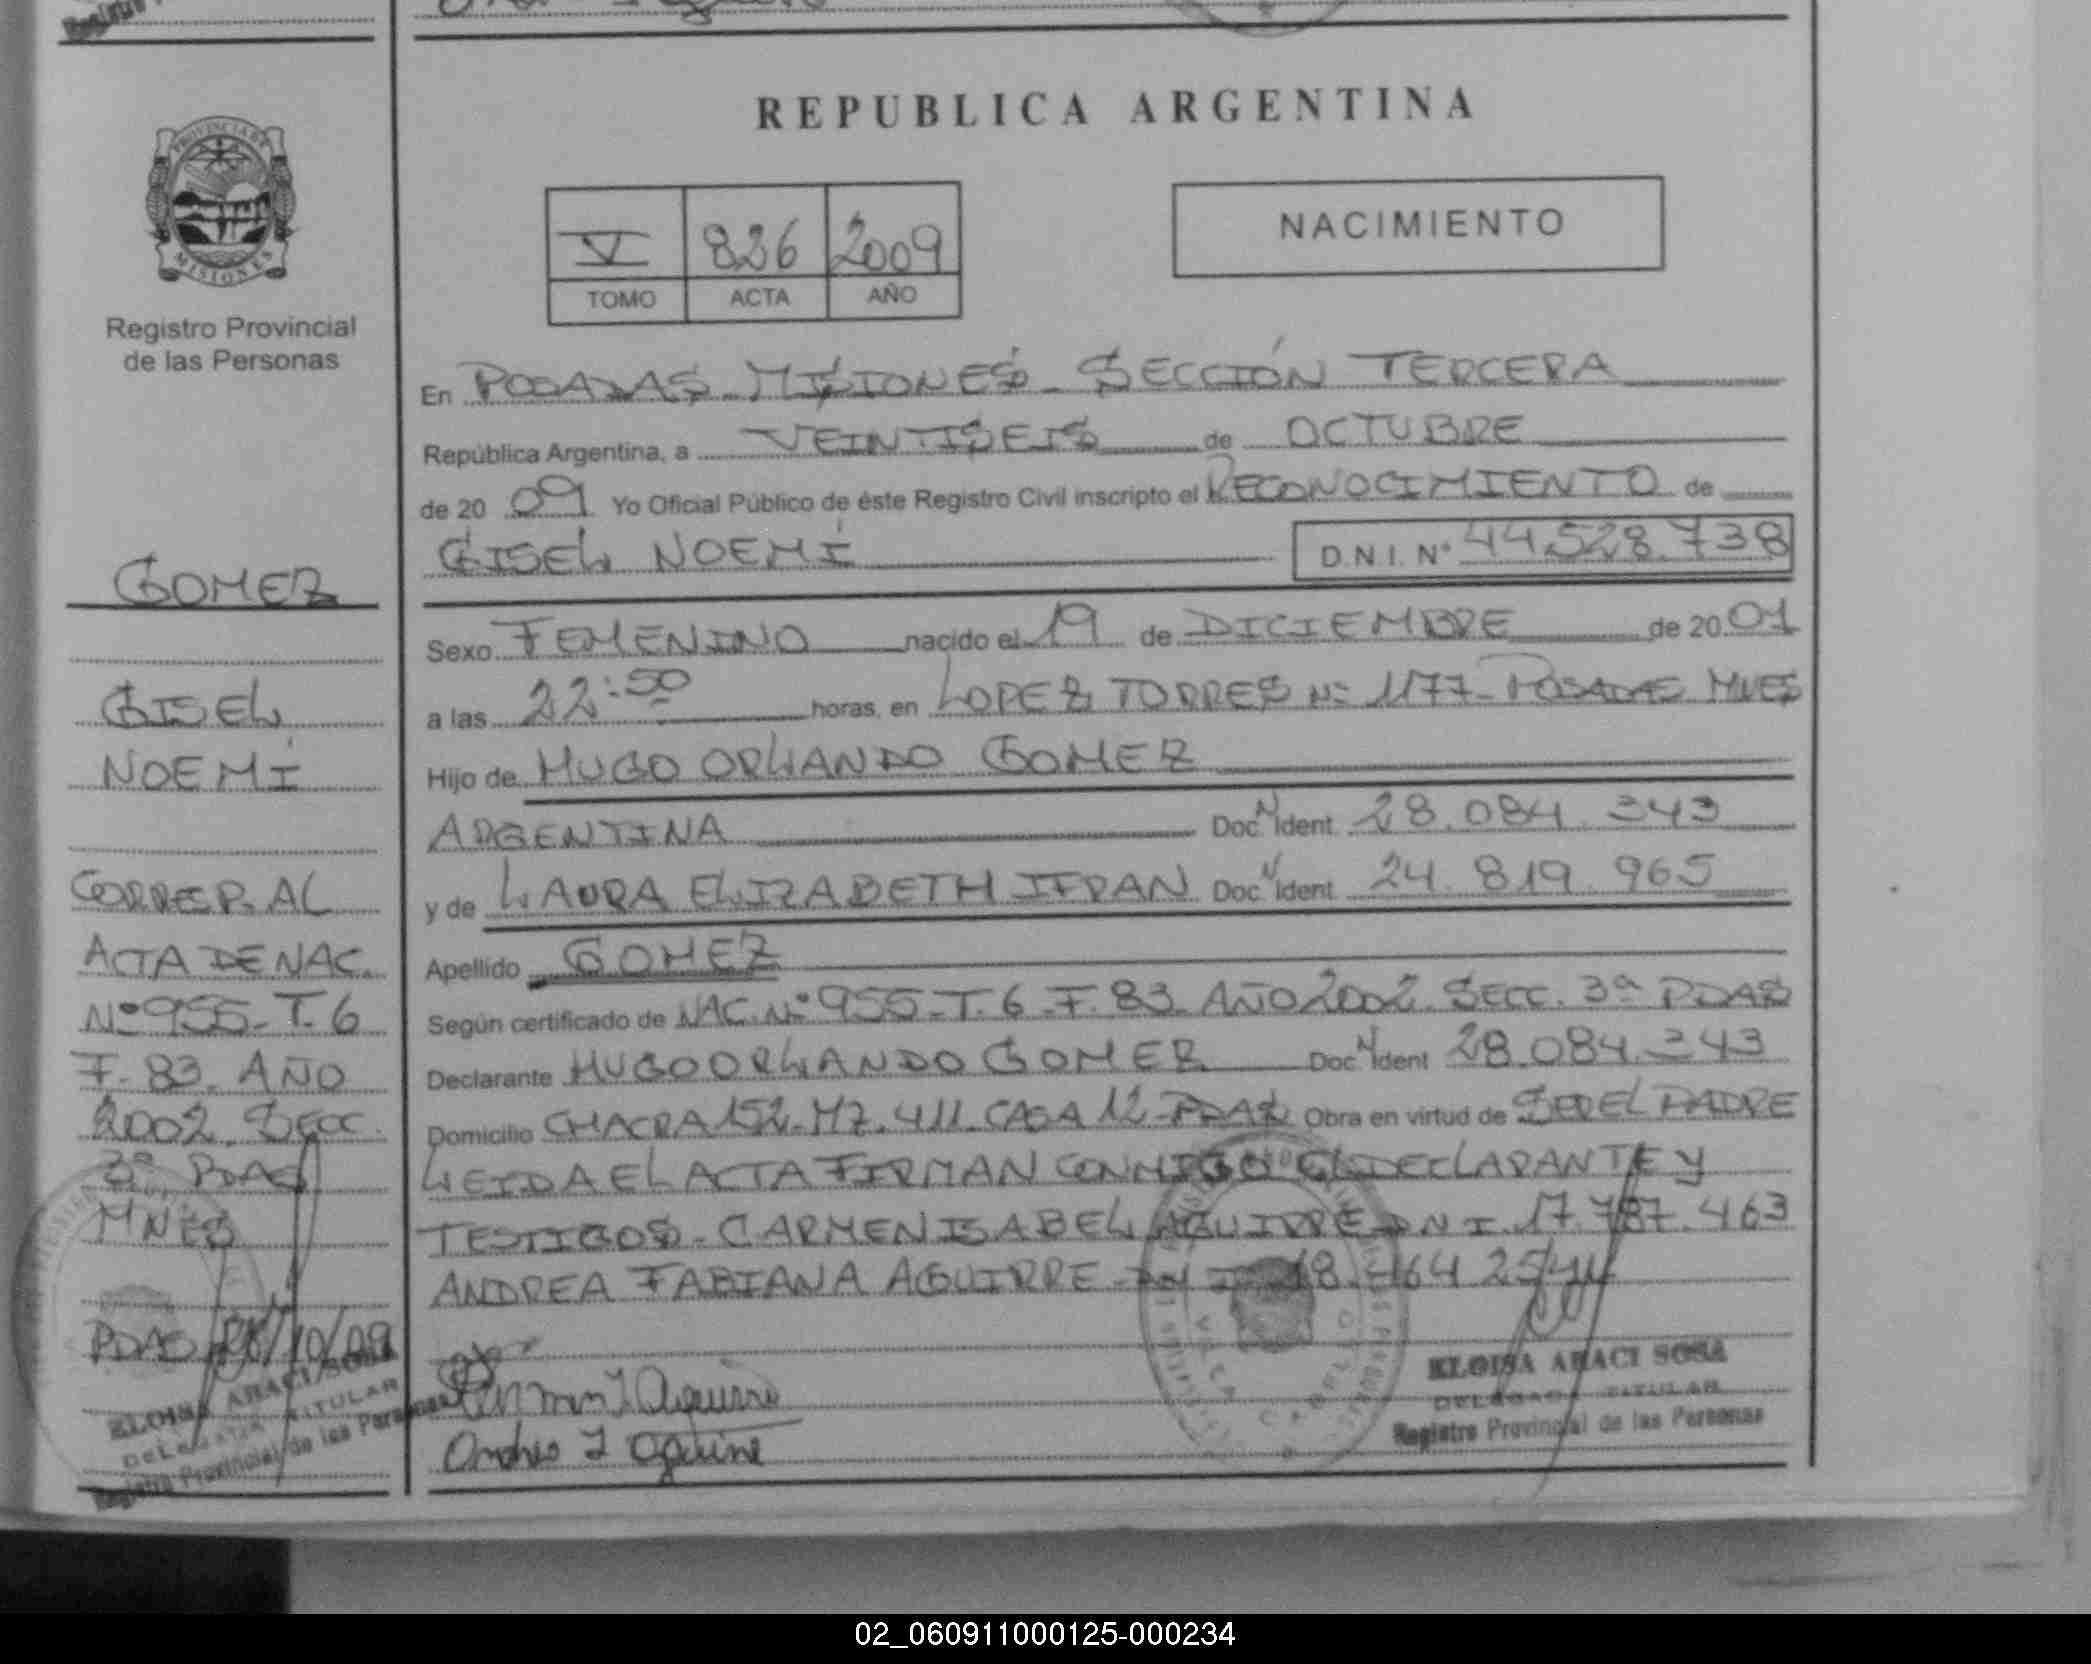 REPUBLICA ARGENTINA
NACIMIENTO
V 836 2009
TOMO ACTA AÑO
PROVINCIA DE MISIONES
Registro Provincial
de las Personas
En POSADAS MISIONES - SECCIÓN TERCERA
República Argentina, a VEINTISEIS de OCTUBRE
de 2009 Yo Oficial Público de éste Registro Civil inscripto el RECONOCIMIENTO de
GISEL NOEMÍ D.N.I. N° 44.528.738
Sexo FEMENINO nacido el 19 de DICIEMBRE de 2001
a las 22:50 horas, en LOPEZ TORRES Nº 1177 - POSADAS MNES
Hijo de HUGO ORLANDO GOMEZ
ARGENTINA Doc. N Ident. 28.084.343
y de LAURA ELIZABETH IFRAN Doc. N Ident. 24.819.965
Apellido GOMEZ
Según certificado de NAC. Nº 955 - T. 6 - F. 83 - AÑO 2002. SECC. 3ª PDAS
Declarante HUGO ORLANDO GOMEZ Doc. N Ident 28.084.343
Domicilio CHACRA 152 - MZ. 411. CASA 12 - PDAS Obra en virtud de SER EL PADRE
LEIDA EL ACTA FIRMAN CONMIGO EL DECLARANTE Y
TESTIGOS - CARMEN ISABEL AGUIRRE DNI. 17.787.463
ANDREA FABIANA AGUIRRE DNI 18.464.25
Carmen I Aguirre
Andrea F Aguirre
ELOISA ARACI SOSA
DELEGADA TITULAR
Registro Provincial de las Personas
GOMEZ
GISEL
NOEMÍ
CORRER AL
ACTA DE NAC.
Nº 955 - T. 6
F. 83. AÑO
2002. SECC.
3ª PDAS
MNES
PDAS /10/09
ELOISA ARACI SOSA
DELEGADA TITULAR
Registro Provincial de las Personas
02_060911000125-000234